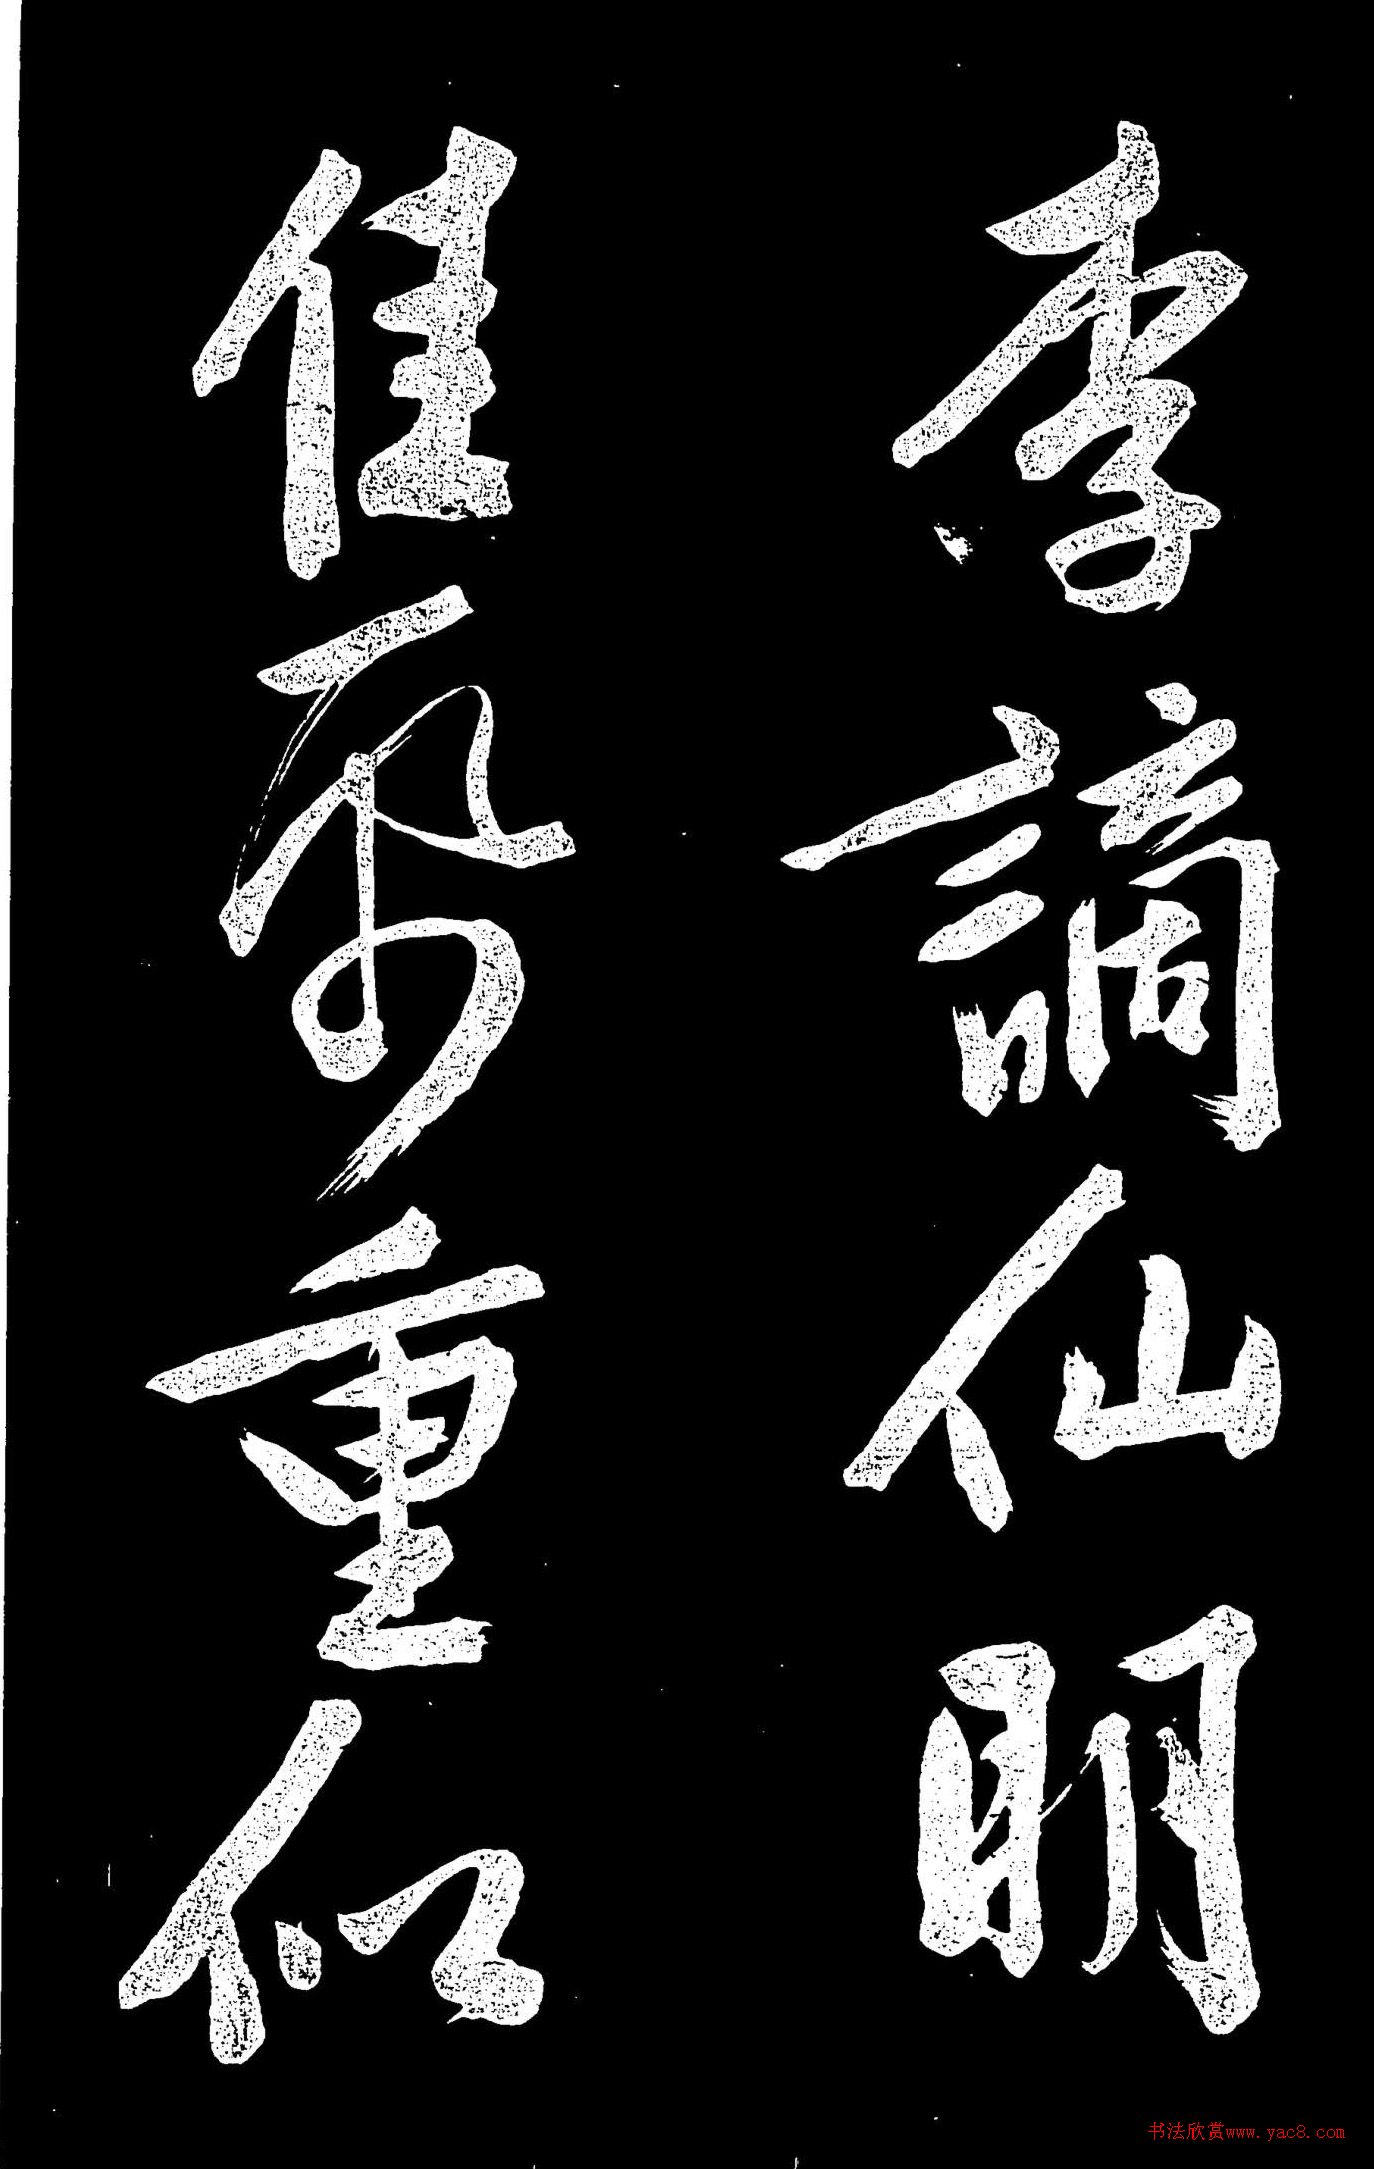 李謫仙明
佳重似
书法欣赏www.yac8.com